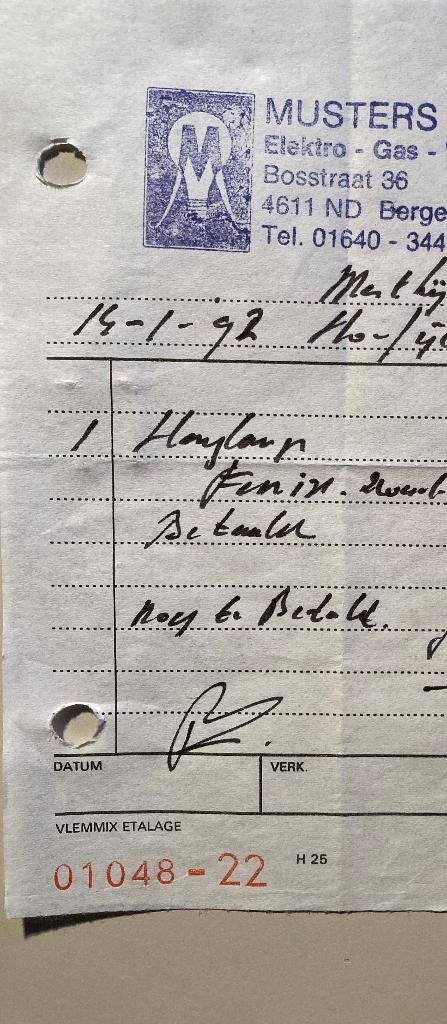 MUSTERS
Elektro - Gas -
Bosstraat 36
4611 ND Berge
Tel. 01640 - 344
14-1-92
1 Hanglamp
Betaald
Nog te Betale.
DATUM VERK.
VLEMMIX ETALAGE
01048-22 H 25